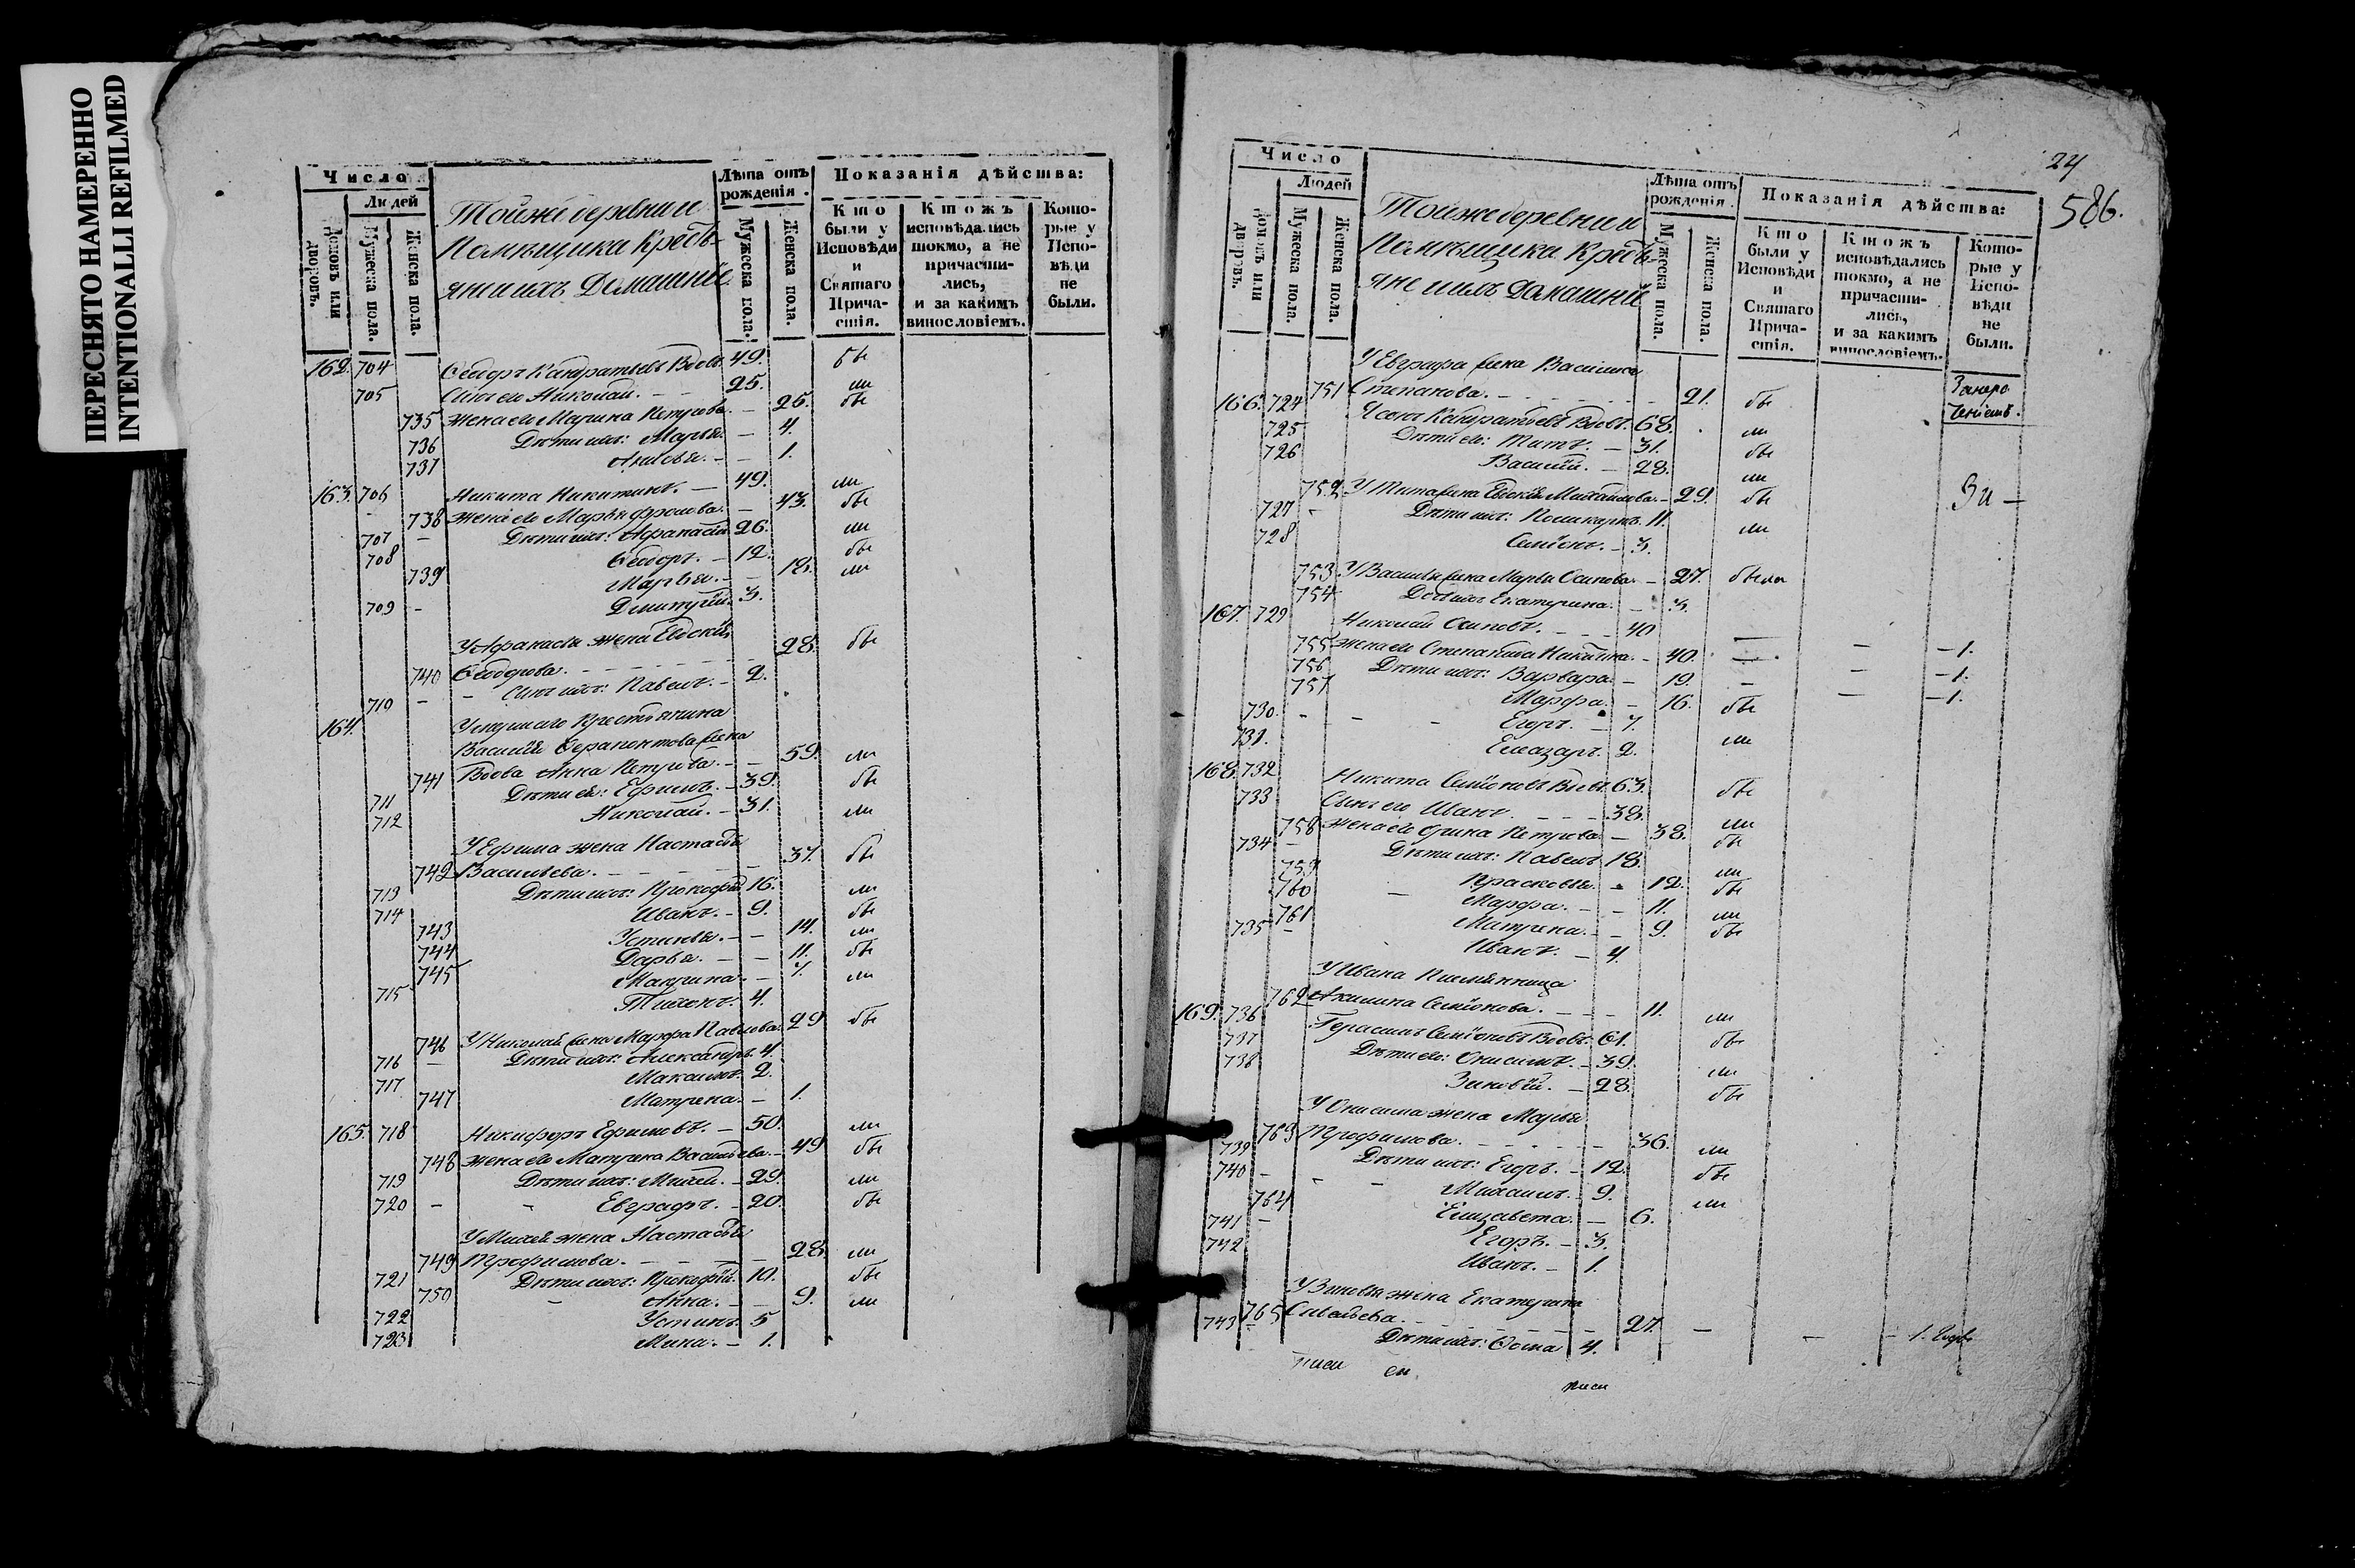 ПЕРЕСНЯТО НАМЕРЕННО
INTENTIONALLI REFILMED
Число
Людей
Домовъ или дворовъ.
Мужеска пола.
Женска пола.
Тойже деревни и
Помѣщика Кресть-
яни ихъ Домашніе
Лѣта отъ рожденія.
Мужеска пола.
Женска пола.
Показанія дѣйства:
Кто были у Исповѣди и Святаго Прича-стія.
Ктожъ исповѣдались токмо, а не причасти-лись, и за какимъ винословіемъ.
Кото-рые у Испо-вѣди не были.
162. 704 Ѳеодоръ Кондратьевъ Вдовъ. 49. бы
705 Сынъ его Николай. 25. ли
735 Жена его Марина Петрова. 26. бы
736 Дѣти ихъ: Марья. 4.
737 Анисья. 1.
163. 706 Никита Никитинъ. 49. ли
738 Жена его Марья Фролова. 43. бы
707 Дѣти ихъ: Афанасій 26. ли
708 Ѳеодоръ. 12. бы
739 Марья. 18. ли
709 Димитрій. 3.
У Афанасья жена Евдокія
740 Ѳеодорова. 28. бы
710 Сынъ ихъ: Павелъ. 2.
164. Умершаго Крестьянина
Василія Ферапонтова жена
741 Вдова Анна Петрова. 59. ли
711 Дѣти ея: Ефимъ. 39. бы
712 Николай. 31. ли
У Ефима жена Настасья
742 Васильева. 37. бы
713 Дѣти ихъ: Прокофій 16. ли
714 Иванъ. 9. бы
743 Устинья. 14. ли
744 Дарья. 11. бы
745 Матрина. 7. ли
715 Тихонъ. 4.
746 У Николая жена Марфа Павлова. 29 бы
716 Дѣти ихъ: Александръ. 4.
717 Максимъ. 2.
747 Матрена. 1.
165. 718 Никифоръ Ефимовъ. 50. ли
748 Жена его Матрена Васильева. 49 бы
719 Дѣти ихъ: Михей. 29. ли
720 Евграфъ. 20. бы
У Михея жена Настасья
749 Трофимова. 28. ли
721 Дѣти ихъ: Прокофій. 10. бы
750 Анна. 9. ли
722 Устинъ. 5
723 Мина. 1.
24
586.
Число
Людей
Домовъ или дворовъ.
Мужеска пола.
Женска пола.
Тойже деревни и
Помѣщика Кресть-
яне и ихъ Домашніе
Лѣта отъ рожденія.
Мужеска пола.
Женска пола.
Показанія дѣйства:
Кто были у Исповѣди и Святаго Прича-стія.
Ктожъ исповѣдались токмо, а не причасти-лись, и за какимъ винословіемъ.
Кото-рые у Испо-вѣди не были.
У Евграфа жена Василиса
751 Степанова. 21. бы
166. 724 Кондратьевъ Вдовъ. 68. ли
725 Дѣти его: Титъ. 31. бы
726 Василій. 28. ли
752 У Тита жена Евдокія Михайлова. 29. бы
727 Дѣти ихъ: Поликарпъ. 11. ли
728 Семіонъ. 3.
753 У Василья жена Марья Осипова. 27. была
754 Дочь ихъ Екатерина. 3.
167. 729 Николай Осиповъ. 40 — — — 1.
755 Жена его Степанида Никитина. 40. — — — 1.
756 Дѣти ихъ: Варвара. 19. — — — 1.
757 Марфа. 16. бы
730. Егоръ. 7. ли
731. Елиазаръ. 2.
168. 732 Никита Семіоновъ Вдовъ. 63. бы
733 Сынъ его Иванъ. 38. ли
758 Жена его Ирина Петрова. 38. бы
734 Дѣти ихъ: Павелъ 18. ли
759 Прасковья. 12. бы
760 Марфа. 11. ли
761 Матрена. 9. бы
735 Иванъ. 4.
У Ивана Племянница
762 Акилина Семіонова. 11. ли
169. 736 Герасимъ Семіоновъ Вдовъ. 61. бы
737 Дѣти его: Онисимъ. 39. ли
738 Зиновій. 28. бы
У Онисима жена Марья
763 Трофимова. 36. ли
739 Дѣти ихъ: Егоръ. 12. бы
740 Михаилъ. 9. ли
764 Елизавета. 6.
741 Егоръ. 3.
742 Иванъ. 1.
У Зиновья жена Екатерина
765 Савельева. 27. — — — 1.
743 Дѣти ихъ: Ѳома 4.